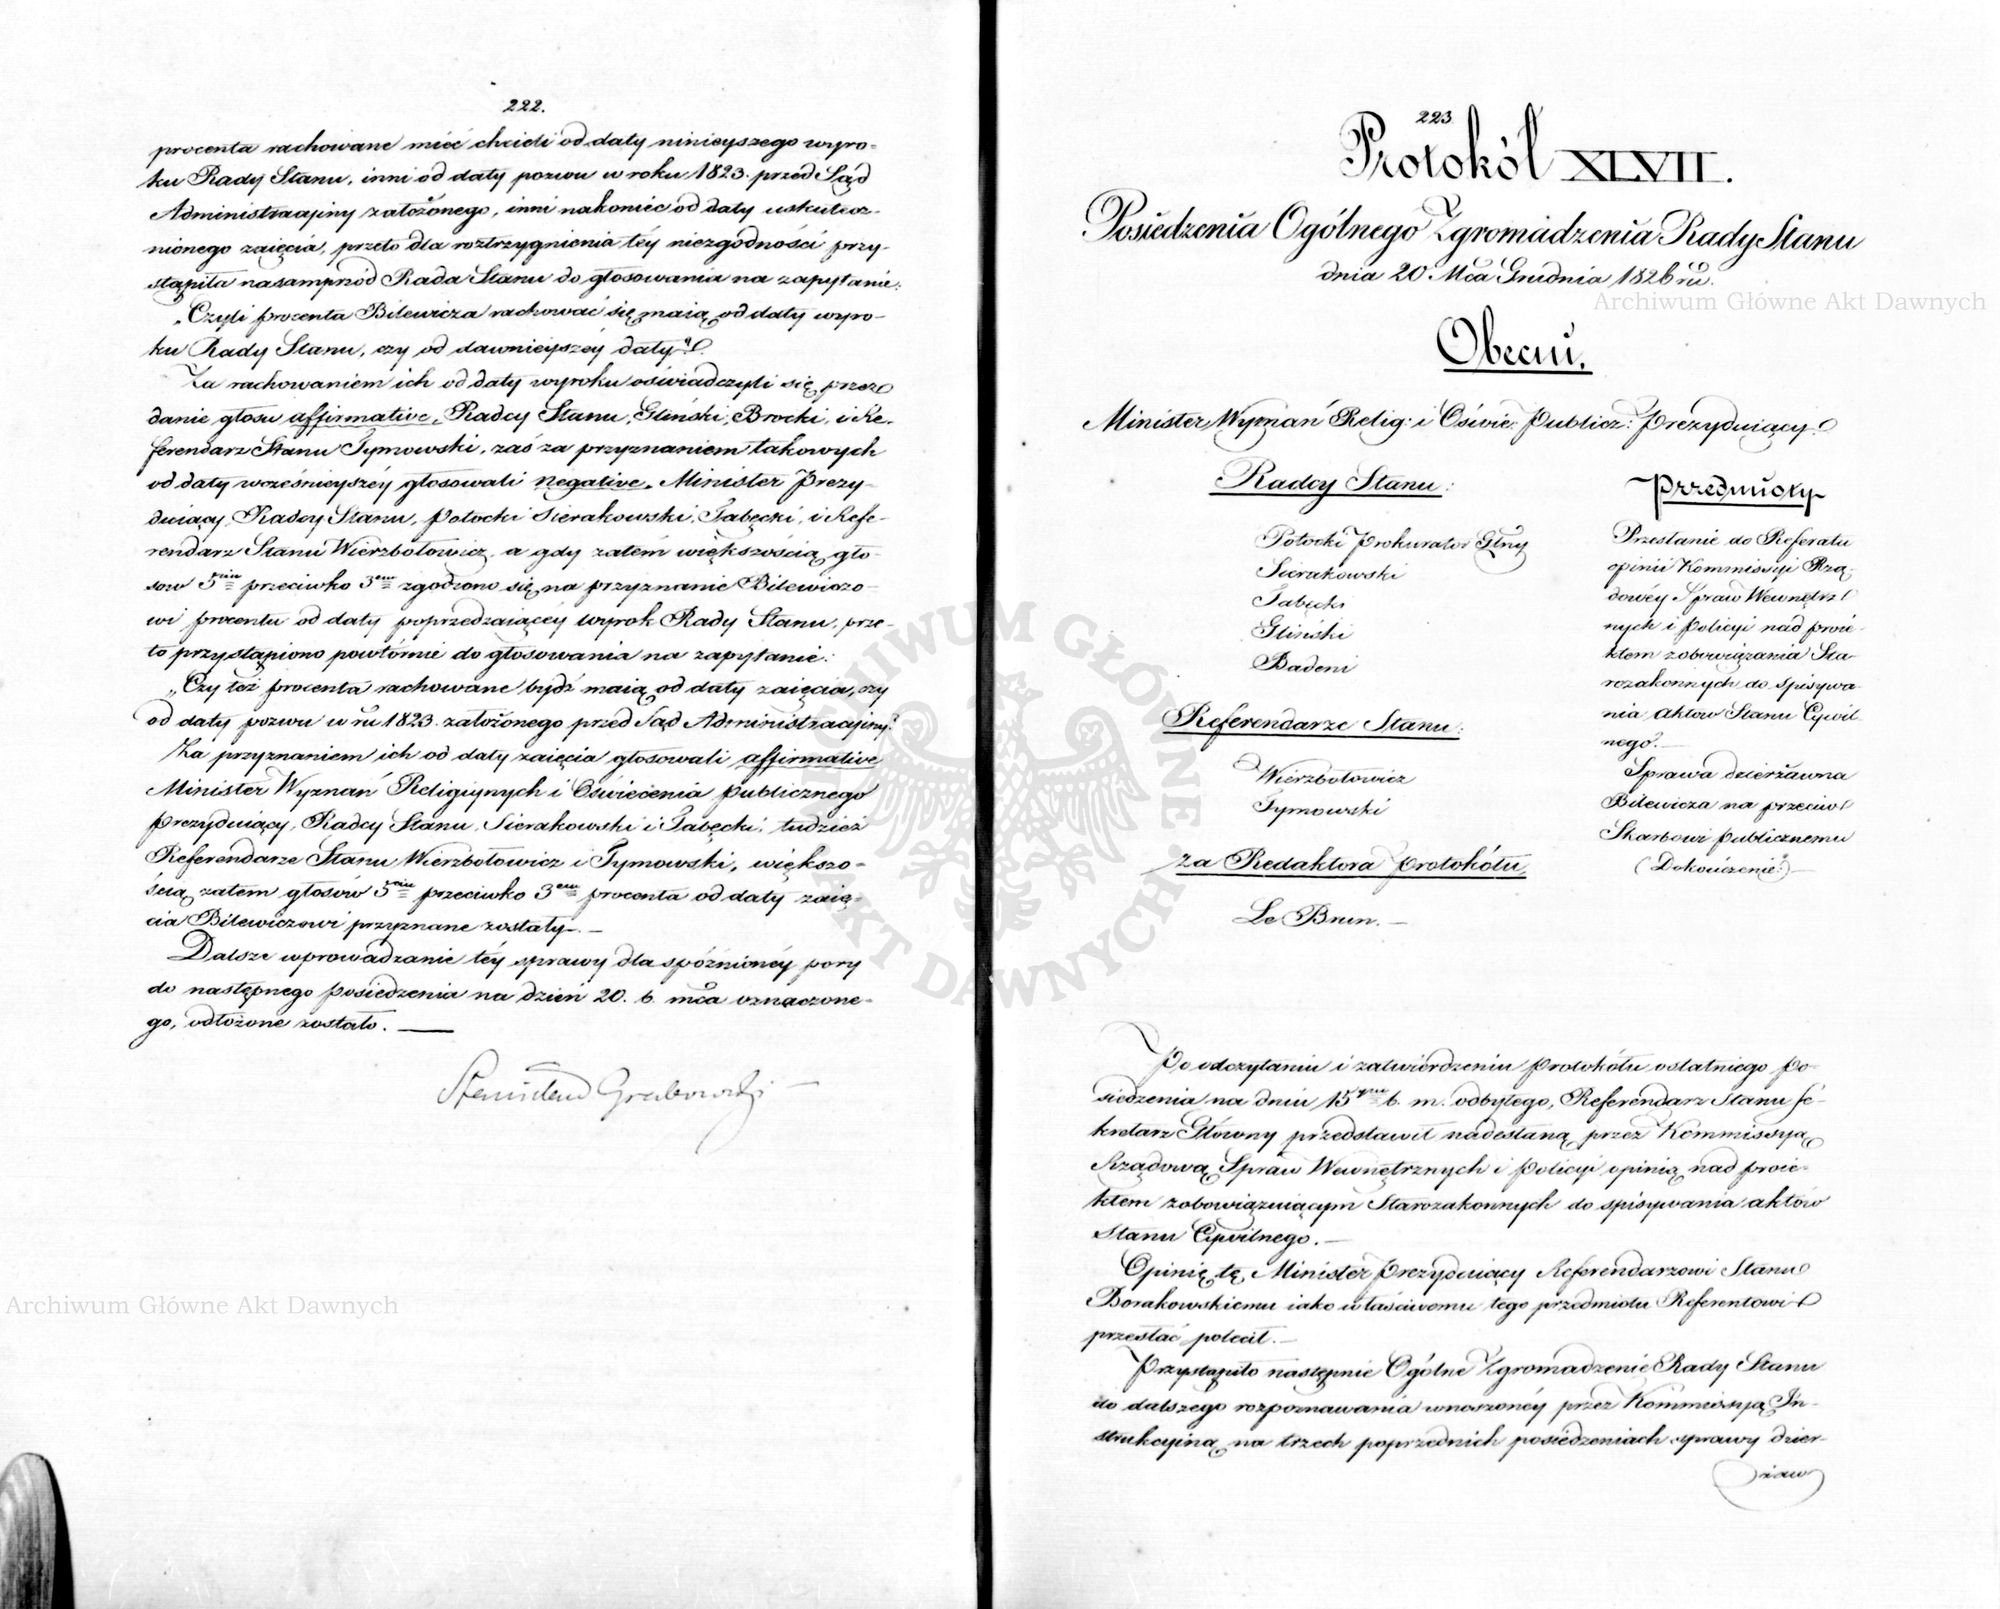 222.
procenta rachowane mieć chcieli od daty ninieyszego wyro-
ku Rady Stanu, inni od daty pozwu w roku 1823. przed Sąd
Administracyiny założonego, inni nakoniec od daty uskutecz-
nionego zaięcia, przeto dla roztrzygnienia téy niezgodności przy-
stąpiła nasamprzód Rada Stanu do głosowania na zapytanie:
„Czyli procenta Bilewicza rachować się maią od daty wyro-
ku Rady Stanu, czy od dawnieyszéy daty"?
Za rachowaniem ich od daty wyroku oświadczyli się przez
danie głosu affirmative, Radcy Stanu, Gliński, Brocki, i Re-
ferendarz Stanu Tymowski, zaś za przyznaniem takowych
od daty wcześnieyszéy głosowali negative, Minister Prezy-
duiący, Radcy Stanu, Potocki Sierakowski, Tabęcki, i Refe-
rendarz Stanu Wierzbołowicz, a gdy zatém większością gło-
sów 5ciu przeciwko 3em zgodzono się na przyznanie Bilewiczo-
wi procentu od daty poprzedzaiącéy wyrok Rady Stanu, prze-
to przystąpiono powtórnie do głosowania na zapytanie:
„Czy też procenta rachowane bydź maią od daty zaięcia, czy
od daty pozwu w ru 1823. założonego przed Sąd Administracyiny?
Za przyznaniem ich od daty zaięcia głosowali affirmative
Minister Wyznań Religiynych i Oświecenia Publicznego
Prezyduiący, Radcy Stanu, Sierakowski i Tabęcki, tudzież
Referendarze Stanu Wierzbołowicz i Tymowski, większo-
ścią zatem głosów 5ciu przeciwko 3em procenta od daty zaię-
cia Bilewiczowi przyznane zostały.—
Dalsze wprowadzanie téy sprawy dla spóźnionéy pory
do następnego posiedzenia na dzień 20. b. mca oznaczone-
go, odłożone zostało.—
Stanisław Grabowski
223
Protokół XLVII.
Posiedzenia Ogólnego Zgromadzenia Rady Stanu
dnia 20 Mca Grudnia 1826 ru.
Obecni.
Minister Wyznań Relig: i Oświe: Publicz: Prezyduiący
Radcy Stanu:
Potocki Prokurator Glny
Sierakowski
Tabęcki
Gliński
Badeni
Referendarze Stanu:
Wierzbołowicz
Tymowski
za Redaktora Protokółu,
Le Brun.—
Przedmioty
Przesłanie do Referatu
opinii Kommissyi Rzą-
dowéy Spraw Wewnętrz-
nych i Policyi nad proie-
ktem zobowiązania Sta-
rozakonnych do spisywa-
nia Aktów Stanu Cywil
nego.—
Sprawa dzierżawna
Bilewicza na przeciw
Skarbowi publicznemu
(Dokończenie)—
Po odczytaniu i zatwierdzeniu Protokółu ostatniego Po-
siedzenia na dniu 15tym b. m. odbytego, Referendarz Stanu Se-
kretarz Główny przedstawił nadesłaną przez Kommissyą
Rządową Spraw Wewnętrznych i Policyi opinią nad proie-
ktem zobowiązuiącym Starozakonnych do spisywania aktów
Stanu Cywilnego.—
Opinię tę, Minister Prezyduiący Referendarzowi Stanu
Borakowskiemu iako właściwemu tego przedmiotu Referentowi
przesłać polecił.—
Przystąpiło następnie Ogólne Zgromadzenie Rady Stanu
do dalszego rozpoznawania wnoszonéy przez Kommissyą In-
strukcyiną na trzech poprzednich posiedzeniach sprawy dzier-
żaw
Archiwum Główne Akt Dawnych
Archiwum Główne Akt Dawnych
ARCHIWUM GŁÓWNE AKT DAWNYCH